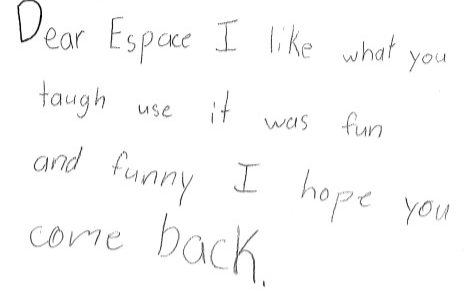 Dear Espace I like what you
taugh use it was fun
and funny I hope you
come back.